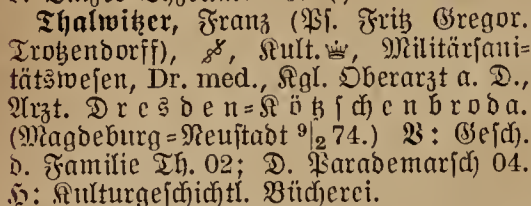 Thalwitzer, Franz (Ps. Fritz Gregor.
Trotzendorff), Kult. Militärsani=
tätswesen, Dr. med., Kgl. Oberarzt a. D.,
Arzt. Dresden=Kötzschenbroda.
(Magdeburg=Neustadt 9|2 74.) V: Gesch.
d. Familie Th. 02; D. Parademarsch 04.
H: Kulturgeschichtl. Bücherei.